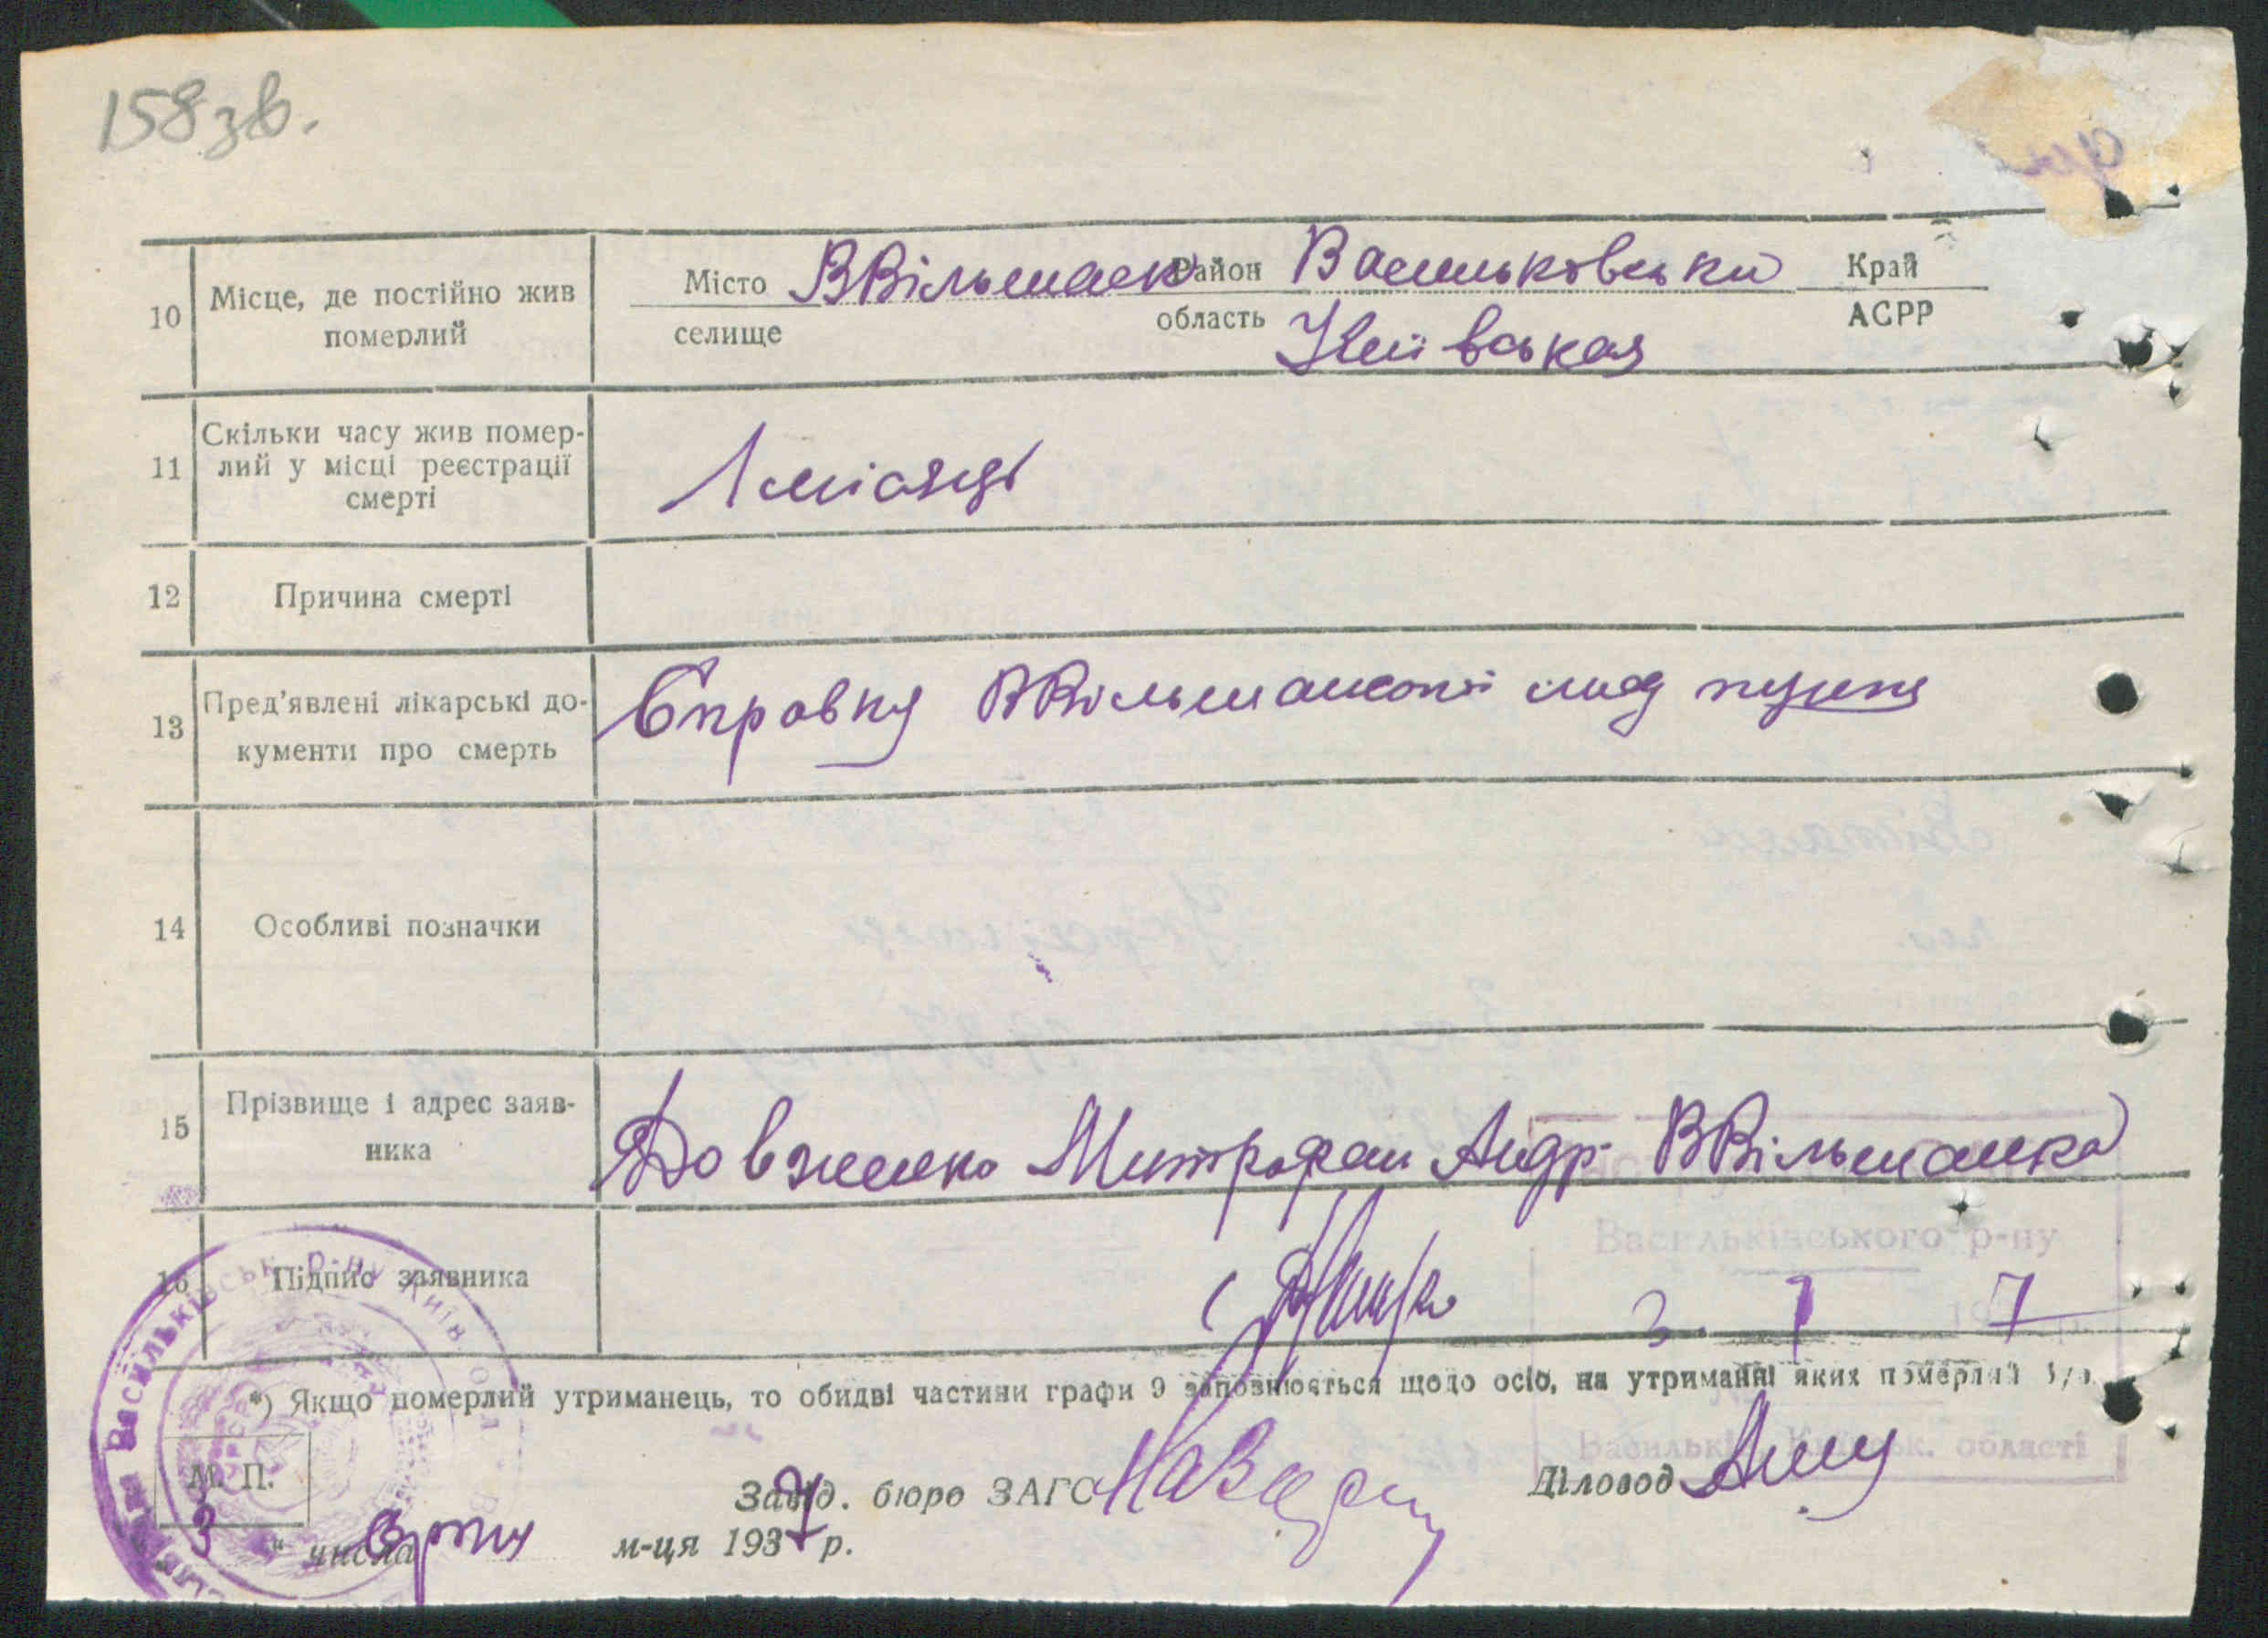 158зв.
10 Місце, де постійно жив померлий
Місто ВВільшаск Район Васильковськи Край
селище область Київськая АСРР
11 Скільки часу жив помер-
лий у місці реєстрації
смерті
1 місяць
12 Причина смерті
13 Пред'явлені лікарські до-
кументи про смерть
Справку ВВільшанської мед пункт
14 Особливі позначки
15 Прізвище і адрес заяв-
ника
Довженко Митрофан Андр ВВільшанка
16 Підпис заявника
Васильківського р-ну
3. 7 7
*) Якщо померлий утриманець, то обидві частини графи 9 заповнюється щодо осіб, на утриманні яких померлий
М. П.
Завід. бюро ЗАГС
Діловод
3 " числа Серпня м-ця 1937 р.